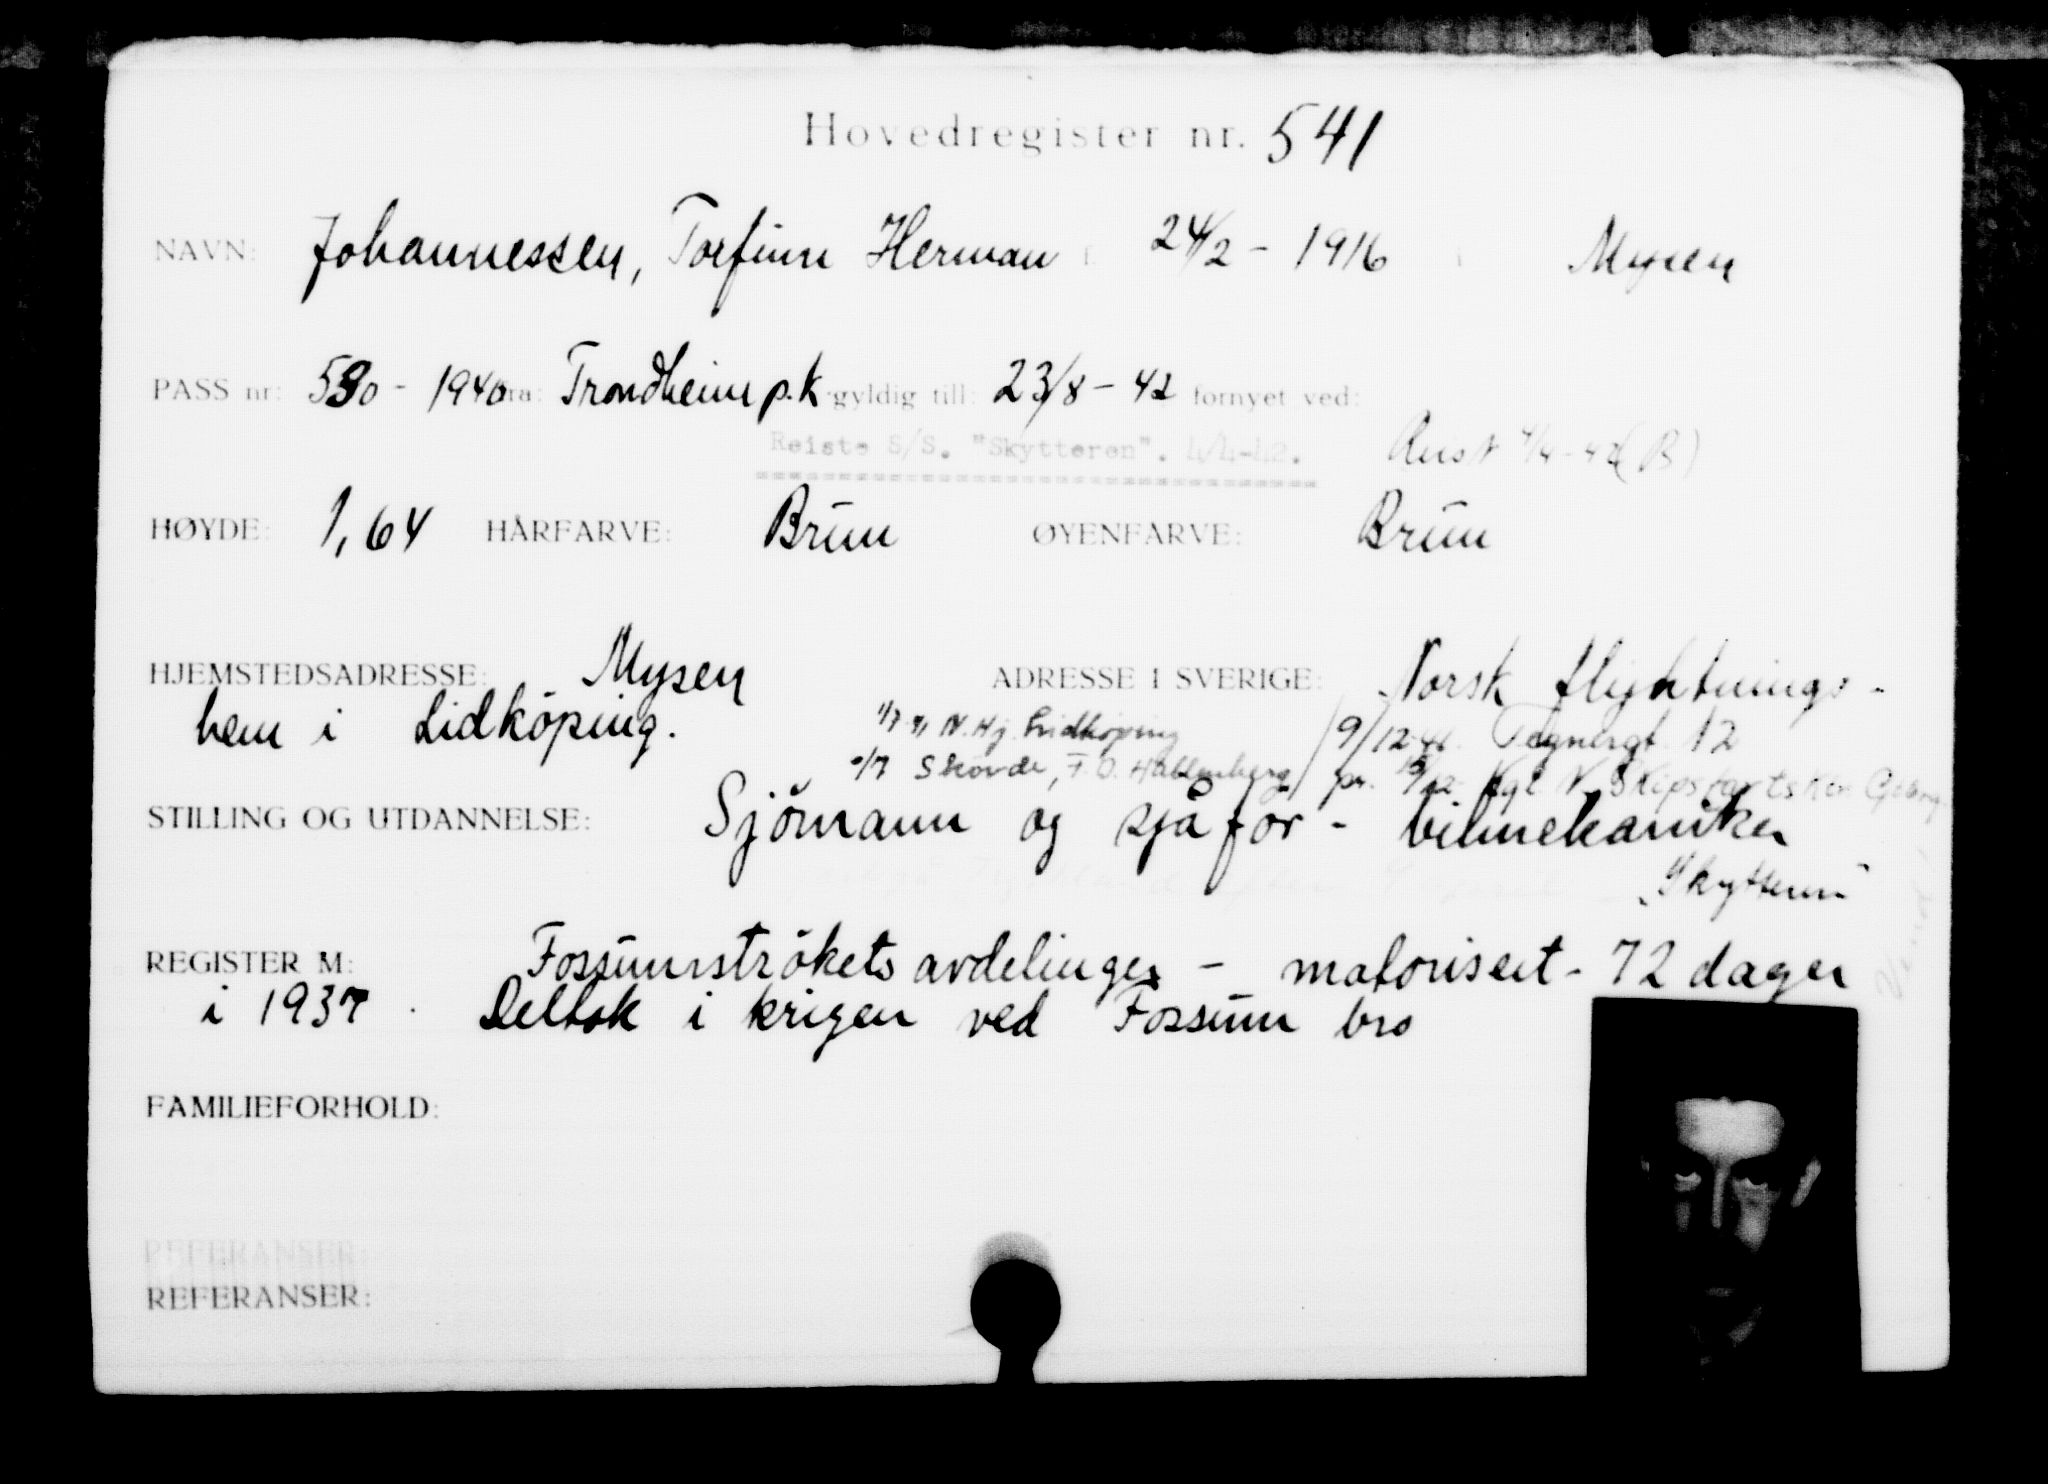 Hovedregister nr. 541
NAVN: Johannessen, Torfinn Herman f. 24/2 - 1916 i Mysen
PASS nr: 590 - 1940 fra: Trondheim p.k. gyldig till: 23/8 - 42 fornyet ved:
Reiste S/S. "Skytteren". 4/4-42.
HØYDE: 1,64 HÅRFARVE: Brun ØYENFARVE: Brun
HJEMSTEDSADRESSE: Mysen ADRESSE I SVERIGE: Norsk flyktnings-
hem i Lidköping. N. Hj. Lidköping 9/12-41. Tegnergt. 12
Skövde, F. O. Hallenberg pr. Kgl. N. Skipsfartskon
STILLING OG UTDANNELSE: Sjömann og sjåför - bilmekaniker
"Skytteren"
REGISTER M: Fossumströkets avdelinger - motorisert - 72 dager
i 1937. Deltok i krigen ved Fossum bro
FAMILIEFORHOLD:
REFERANSER:
REFERANSER: